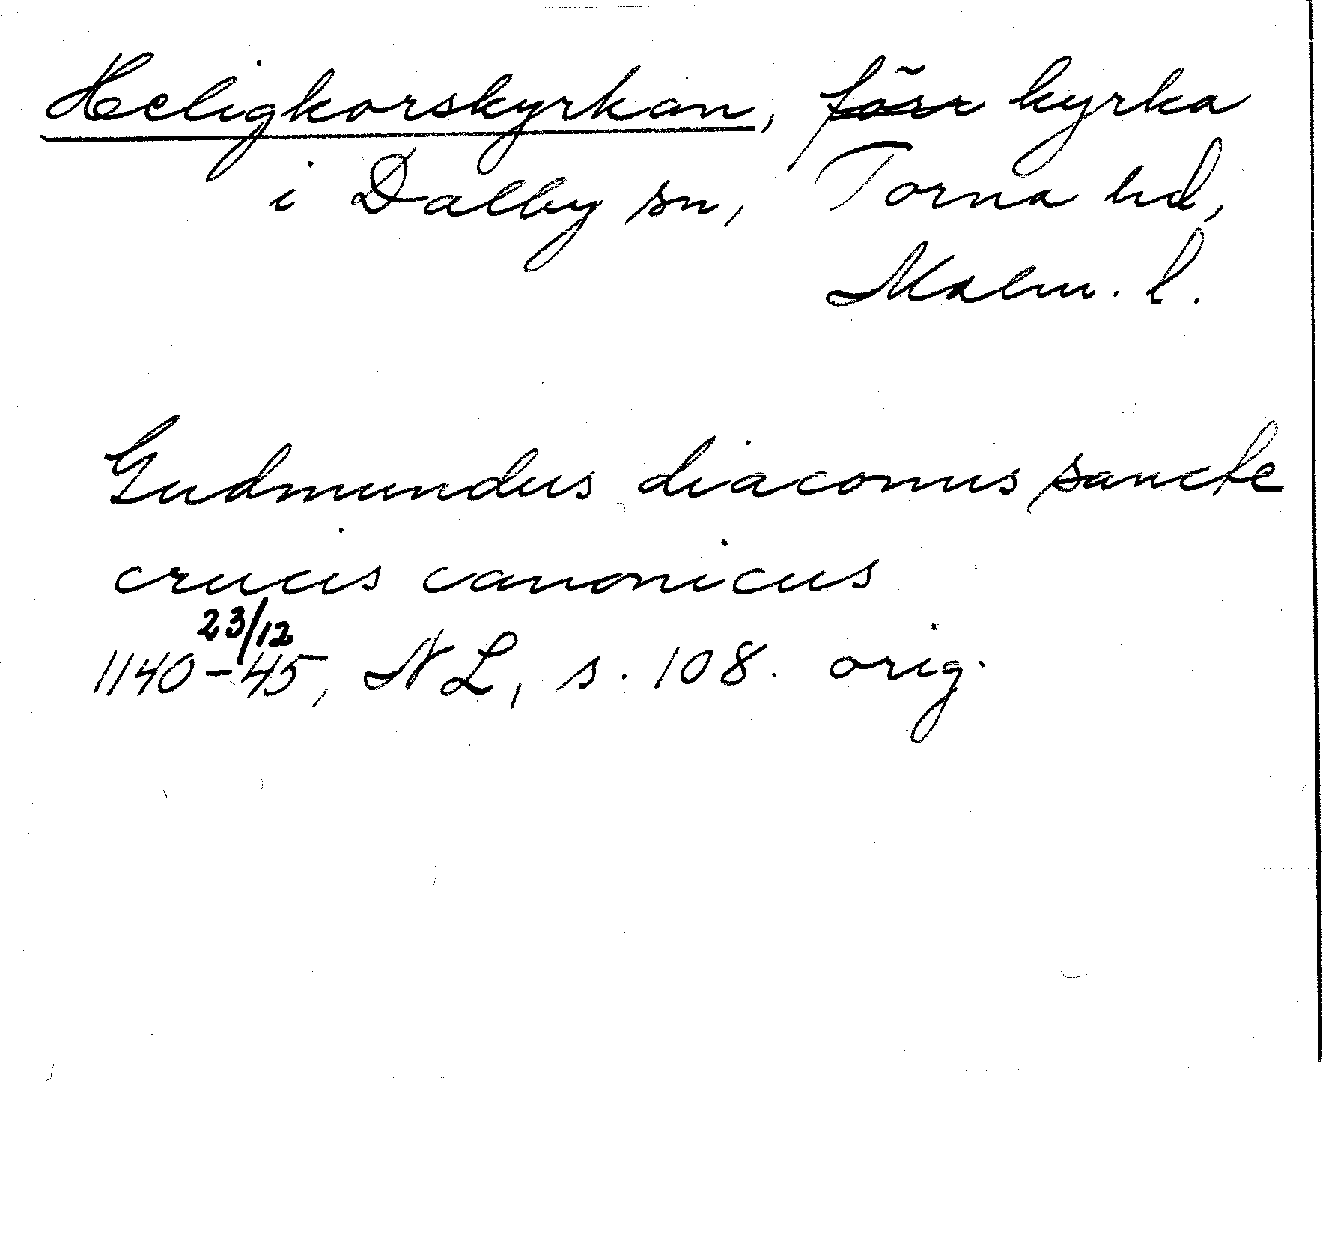 Heligkorskyrkan, förr kyrka
i Dalby sn, Torna hd,
Malm. l.
Gudmundus diaconus sancte
crucis canonicus
23/12
1140-45, NL, s. 108. orig.